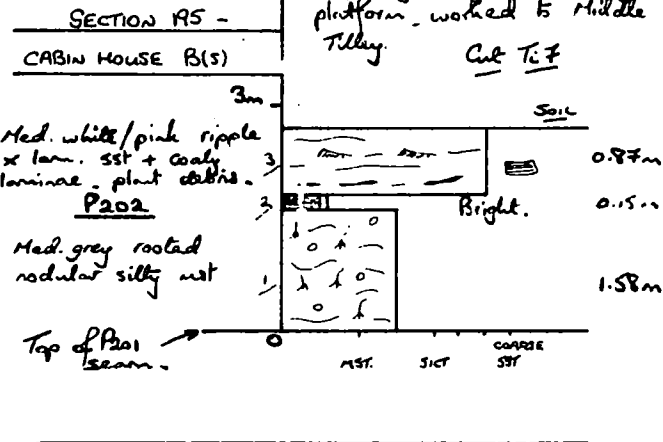 SECTION 195 -
CABIN HOUSE B(S)
platform - worked to Middle
Tilley.
Cut Ti 7
3m
SOIL
Med. white/pink ripple
x lam. sst + coaly
laminae - plant debris.
3
0.87m
P202
2
Bright.
0.15m
Med. grey rooted
nodular silty mst
1
1.58m
Top of P201
seam.
0
MST.
SICT
COARSE
SST